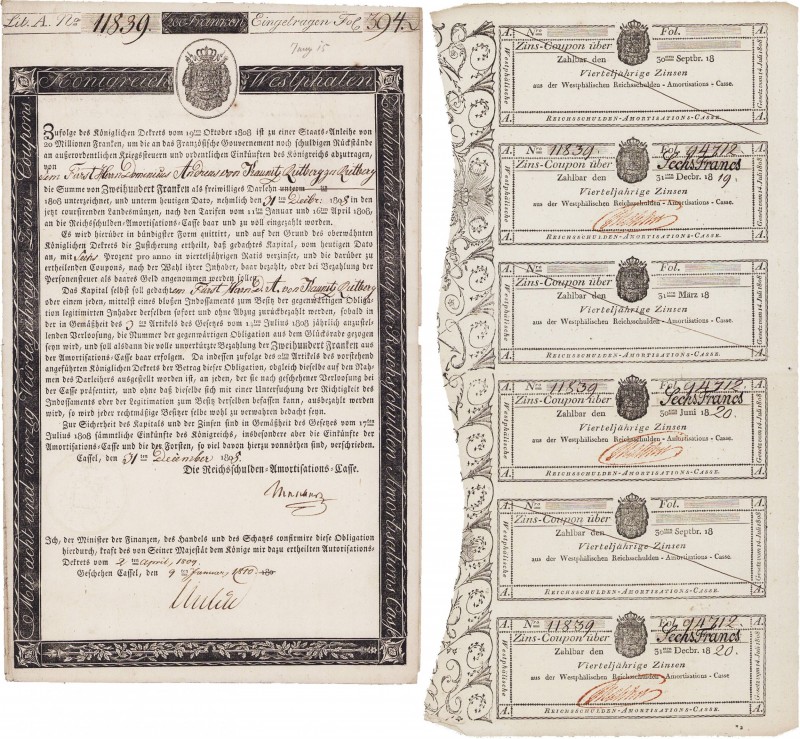 Lit. A. No 11839. 200 Franken Eingetragen Fol. 394.
Koenigreich Westphalen
Zufolge des Königlichen Dekrets vom 19ten Oktober 1808 ist zu einer Staats-Anleihe von
20 Millionen Franken, um die an das Französische Gouvernement noch schuldigen Rückstände
an außerordentlichen Kriegssteuern und ordentlichen Einkünften des Königreichs abzutragen,
von
dem Fürst Herrn Dominicus Andreas von Kaunitz Rittberg zu Rittberg
die Summe von Zweihundert Franken als freiwilliges Darlehn unterm
1808 unterzeichnet, und unterm heutigen Dato, nehmlich den 31 Decbr. 1808 in den
jetzt coursirenden Landesmünzen, nach den Tarifen vom 11ten Januar und 16ten April 1808,
an die Reichsschulden-Amortisations-Casse baar und zu voll eingezahlt worden.
Es wird hierüber in bündigster Form entirt, und auf den Grund des oberwähnten
Königlichen Dekrets die Zusicherung ertheilt, daß gedachtes Kapital, vom heutigen Dato
an, mit Sechs Prozent pro anno in vierteljährigen Ratis verzinset, und die darüber zu
ertheilenden Coupons, nach der Wahl ihrer Inhaber, baar bezahlt, oder bei Bezahlung der
Personensteuer als baares Geld angenommen werden sollen.
Das Kapital selbst soll gedachtem Fürst Herrn D. A. von Kaunitz Rittberg
oder einem jeden, mittelst eines bloßen Indossaments zum Besitz der gegenwärtigen Obligation
legitimirten Inhaber derselben sofort und ohne Abzug zurückbezahlt werden, sobald in
der in Gemäßheit des 9 Artikels des Gesetzes vom 14ten Julius 1808 jährlich anzustellenden
Verloosung, die Nummer der gegenwärtigen Obligation aus dem Glücksrade gezogen
seyn wird, und soll alsdann die voll unverkürzte Bezahlung der Zweihundert Franken aus
der Amortisations-Casse baar erfolgen. Da indessen zufolge des 2ten Artikels des vorstehend
angeführten Königlichen Dekrets der Betrag dieser Obligation, obgleich dieselbe auf den Nahmen
des Darleihers ausgestellt worden ist, an jeden, der sie nach geschehener Verloosung bei
der Casse präsentirt, und ohne daß dieselbe sich mit einer Untersuchung der Richtigkeit des
Indossaments oder der Legitimation zum Besitz derselben befassen kann, ausbezahlt werden
wird, so wird jeder rechtmäßige Besitzer selbe wohl zu verwahren bedacht seyn.
Zur Sicherheit des Kapitals und der Zinsen sind in Gemäßheit des Gesetzes vom 17ten
Julius 1808 sämmtliche Einkünfte des Königreichs, insbesondere aber die Einkünfte der
Amortisations-Casse und die der Forsten, so viel davon hierzu vonnöthen sind, verschrieben.
Cassel, den 31ten December 1808.
Die Reichsschulden-Amortisations-Casse.
Ich, der Minister der Finanzen, des Handels und des Schatzes confirmire diese Obligation
hierdurch, kraft des von Seiner Majestät dem Könige mir dazu ertheilten Autorisations-
Dekrets vom 2ten April, 1809.
Geschehen Cassel, den 9ten Januar, 1810.
A. No Fol. A.
Zins-Coupon über
Zahlbar den 30sten Septbr. 18
Vierteljährige Zinsen
aus der Westphälischen Reichsschulden-Amortisations-Casse.
Westphälische
Gesetz vom 14. Juli 1808
A. Reichsschulden-Amortisations-Casse. A.
A. No 11839 Fol. 94712 A.
Zins-Coupon über Sechs Francs
Zahlbar den 31sten Decbr. 1819.
Vierteljährige Zinsen
aus der Westphälischen Reichsschulden-Amortisations-Casse.
Westphälische
Gesetz vom 14. Juli 1808
A. Reichsschulden-Amortisations-Casse. A.
A. No Fol. A.
Zins-Coupon über
Zahlbar den 31sten März 18
Vierteljährige Zinsen
aus der Westphälischen Reichsschulden-Amortisations-Casse.
Westphälische
Gesetz vom 14. Juli 1808
A. Reichsschulden-Amortisations-Casse. A.
A. No 11839 Fol. 94712. A.
Zins-Coupon über Sechs Francs
Zahlbar den 30sten Juni 1820.
Vierteljährige Zinsen
aus der Westphälischen Reichsschulden-Amortisations-Casse.
Westphälische
Gesetz vom 14. Juli 1808
A. Reichsschulden-Amortisations-Casse. A.
A. No Fol. A.
Zins-Coupon über
Zahlbar den 30sten Septbr. 18
Vierteljährige Zinsen
aus der Westphälischen Reichsschulden-Amortisations-Casse.
Westphälische
Gesetz vom 14. Juli 1808
A. Reichsschulden-Amortisations-Casse. A.
A. No 11839 Fol. 94712 A.
Zins-Coupon über Sechs Francs
Zahlbar den 31sten Decbr. 1820.
Vierteljährige Zinsen
aus der Westphälischen Reichsschulden-Amortisations-Casse
Westphälische
Gesetz vom 14. Juli 1808
A. Reichsschulden-Amortisations-Casse. A.